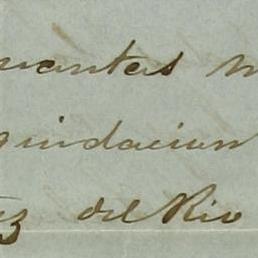 uantas m
quidacion
ez del Rio